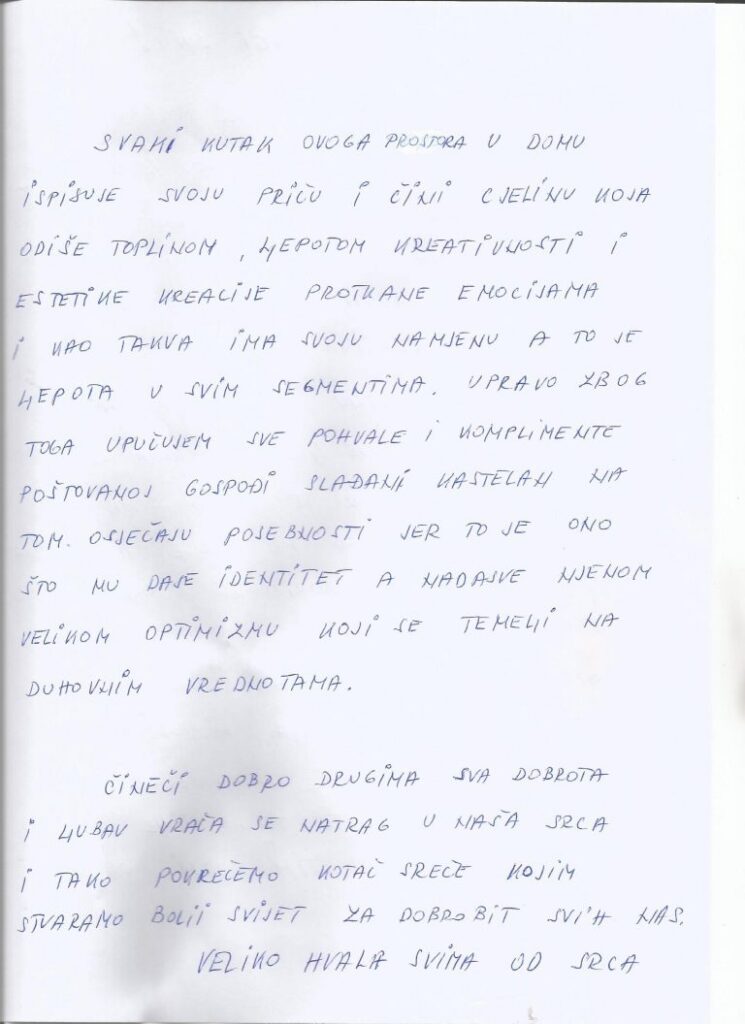 SVAKI KUTAK OVOGA PROSTORA U DOMU
ISPISUJE SVOJU PRIČU I ČINI CJELINU KOJA
ODIŠE TOPLINOM, LJEPOTOM KREATIVNOSTI I
ESTETIKE KREACIJE PROTKANE EMOCIJAMA
I KAO TAKVA IMA SVOJU NAMJENU A TO JE
LJEPOTA U SVIM SEGMENTIMA. UPRAVO ZBOG
TOGA UPUĆUJEM SVE POHVALE I KOMPLIMENTE
POŠTOVANOJ GOSPOĐI SLAĐANI KASTELAN NA
TOM. OSJEČAJU POSEBNOSTI JER TO JE ONO
ŠTO MU DAJE IDENTITET A NADASVE NJENOM
VELIKOM OPTIMIZMU KOJI SE TEMELJI NA
DUHOVNIM VREDNOTAMA.
ČINEČI DOBRO DRUGIMA SVA DOBROTA
I LJUBAV VRAČA SE NATRAG U NAŠA SRCA
I TAKO POKREČEMO KOTAČ SREČE KOJIM
STVARAMO BOLJI SVIJET ZA DOBROBIT SVIH NAS.
VELIKO HVALA SVIMA OD SRCA